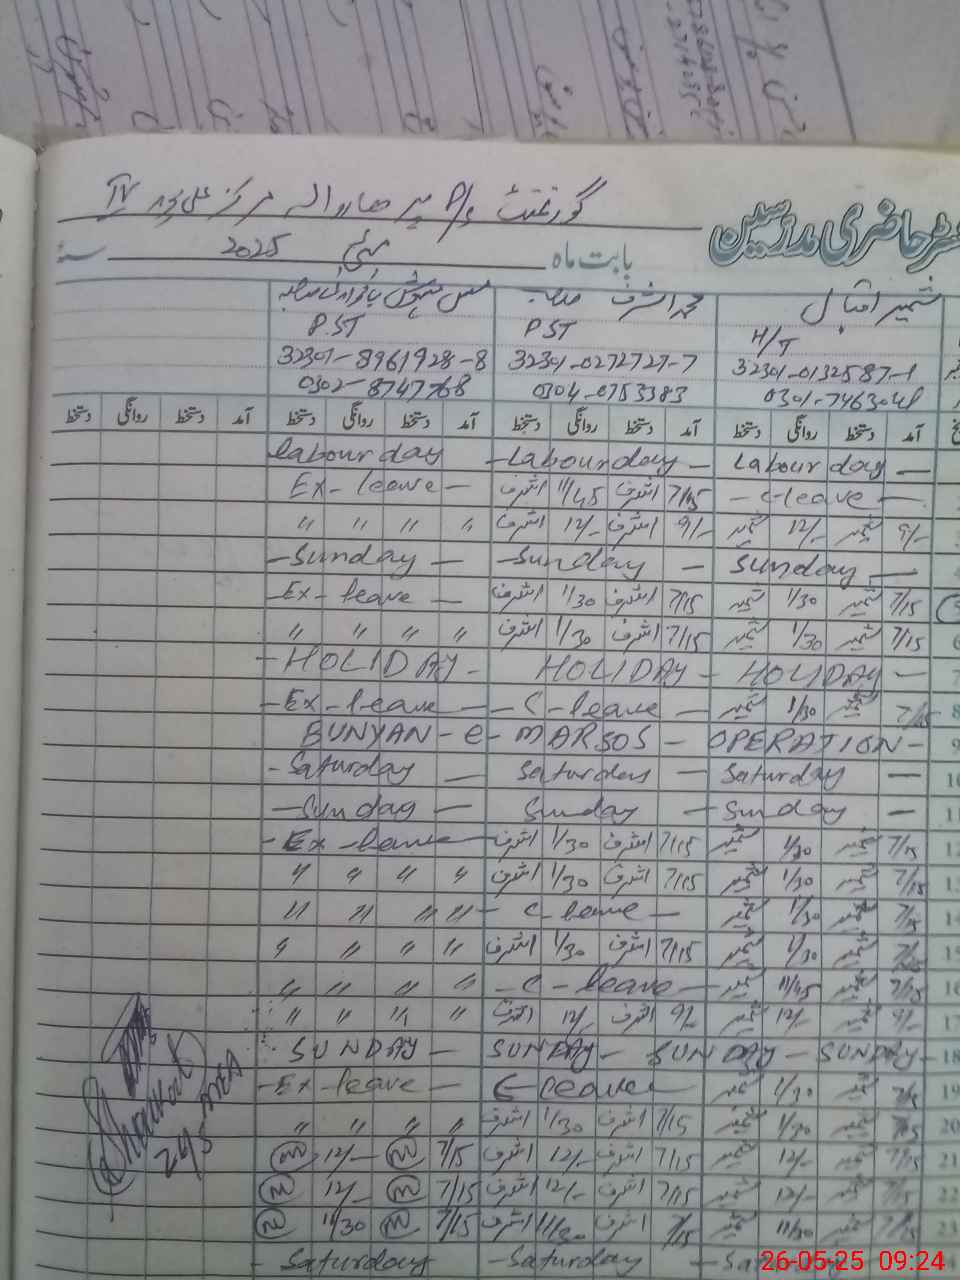 رجسٹر حاضری مدرسین
گورنمنٹ P/S مرکز علی پور IV
بابت ماہ مئی 2025 سنہ
شمیر اقبال محمد اشرف صاحب مس
H/T PST P.ST
32301-0132587-1 32301-0272727-7 32301-8961928-8
0301-7463048 0304-0753383 0302-8747768
آمد دستخط روانگی دستخط آمد دستخط روانگی دستخط آمد دستخط روانگی دستخط آمد دستخط روانگی دستخط
Labour day - Labour day - Labour day -
Ex-leave - اشرف 11/45 اشرف 7/15 - C-leave -
" " " " اشرف 12/- اشرف 9/- شمیر 12/- شمیر 9/-
- Sunday - - Sunday - Sunday -
- Ex-leave - اشرف 1/30 اشرف 7/15 شمیر 1/30 شمیر 7/15 5
" " " " اشرف 1/30 اشرف 7/15 شمیر 1/30 شمیر 7/15 6
- HOLIDAY - HOLIDAY - HOLIDAY - 7
- Ex-leave - - C-leave - شمیر 1/30 شمیر 7/15 8
BUNYAN - e - MARSOS - OPERATION - 9
- Saturday - Saturday - Saturday - 10
- Sunday - Sunday - Sunday - 11
- Ex-leave - اشرف 1/30 اشرف 7/15 شمیر 1/30 شمیر 7/15 12
" " " " اشرف 1/30 اشرف 7/15 شمیر 1/30 شمیر 7/15 13
" " " " - C-leave - شمیر 1/30 شمیر 7/15 14
" " " " اشرف 1/30 اشرف 7/15 شمیر 1/30 شمیر 7/15 15
" " " " - C-leave - شمیر 11/45 شمیر 7/15 16
" " " " اشرف 12/- اشرف 9/- شمیر 12/- شمیر 9/- 17
SUNDAY - SUNDAY - SUNDAY - SUNDAY - 18
- Ex-leave - C-leave - شمیر 1/30 شمیر 7/15 19
" " " " اشرف 1/30 اشرف 7/15 شمیر 1/30 شمیر 7/15 20
m 12/- m 7/15 اشرف 12/- اشرف 7/15 شمیر 12/- شمیر 7/15 21
m 12/- m 7/15 اشرف 12/- اشرف 7/15 شمیر 12/- شمیر 7/15 22
m 11/30 m 7/15 اشرف 11/30 اشرف 7/15 شمیر 11/30 شمیر 7/15 23
- Saturday - Saturday
Shoukat
24/5
26-05-25 09:24